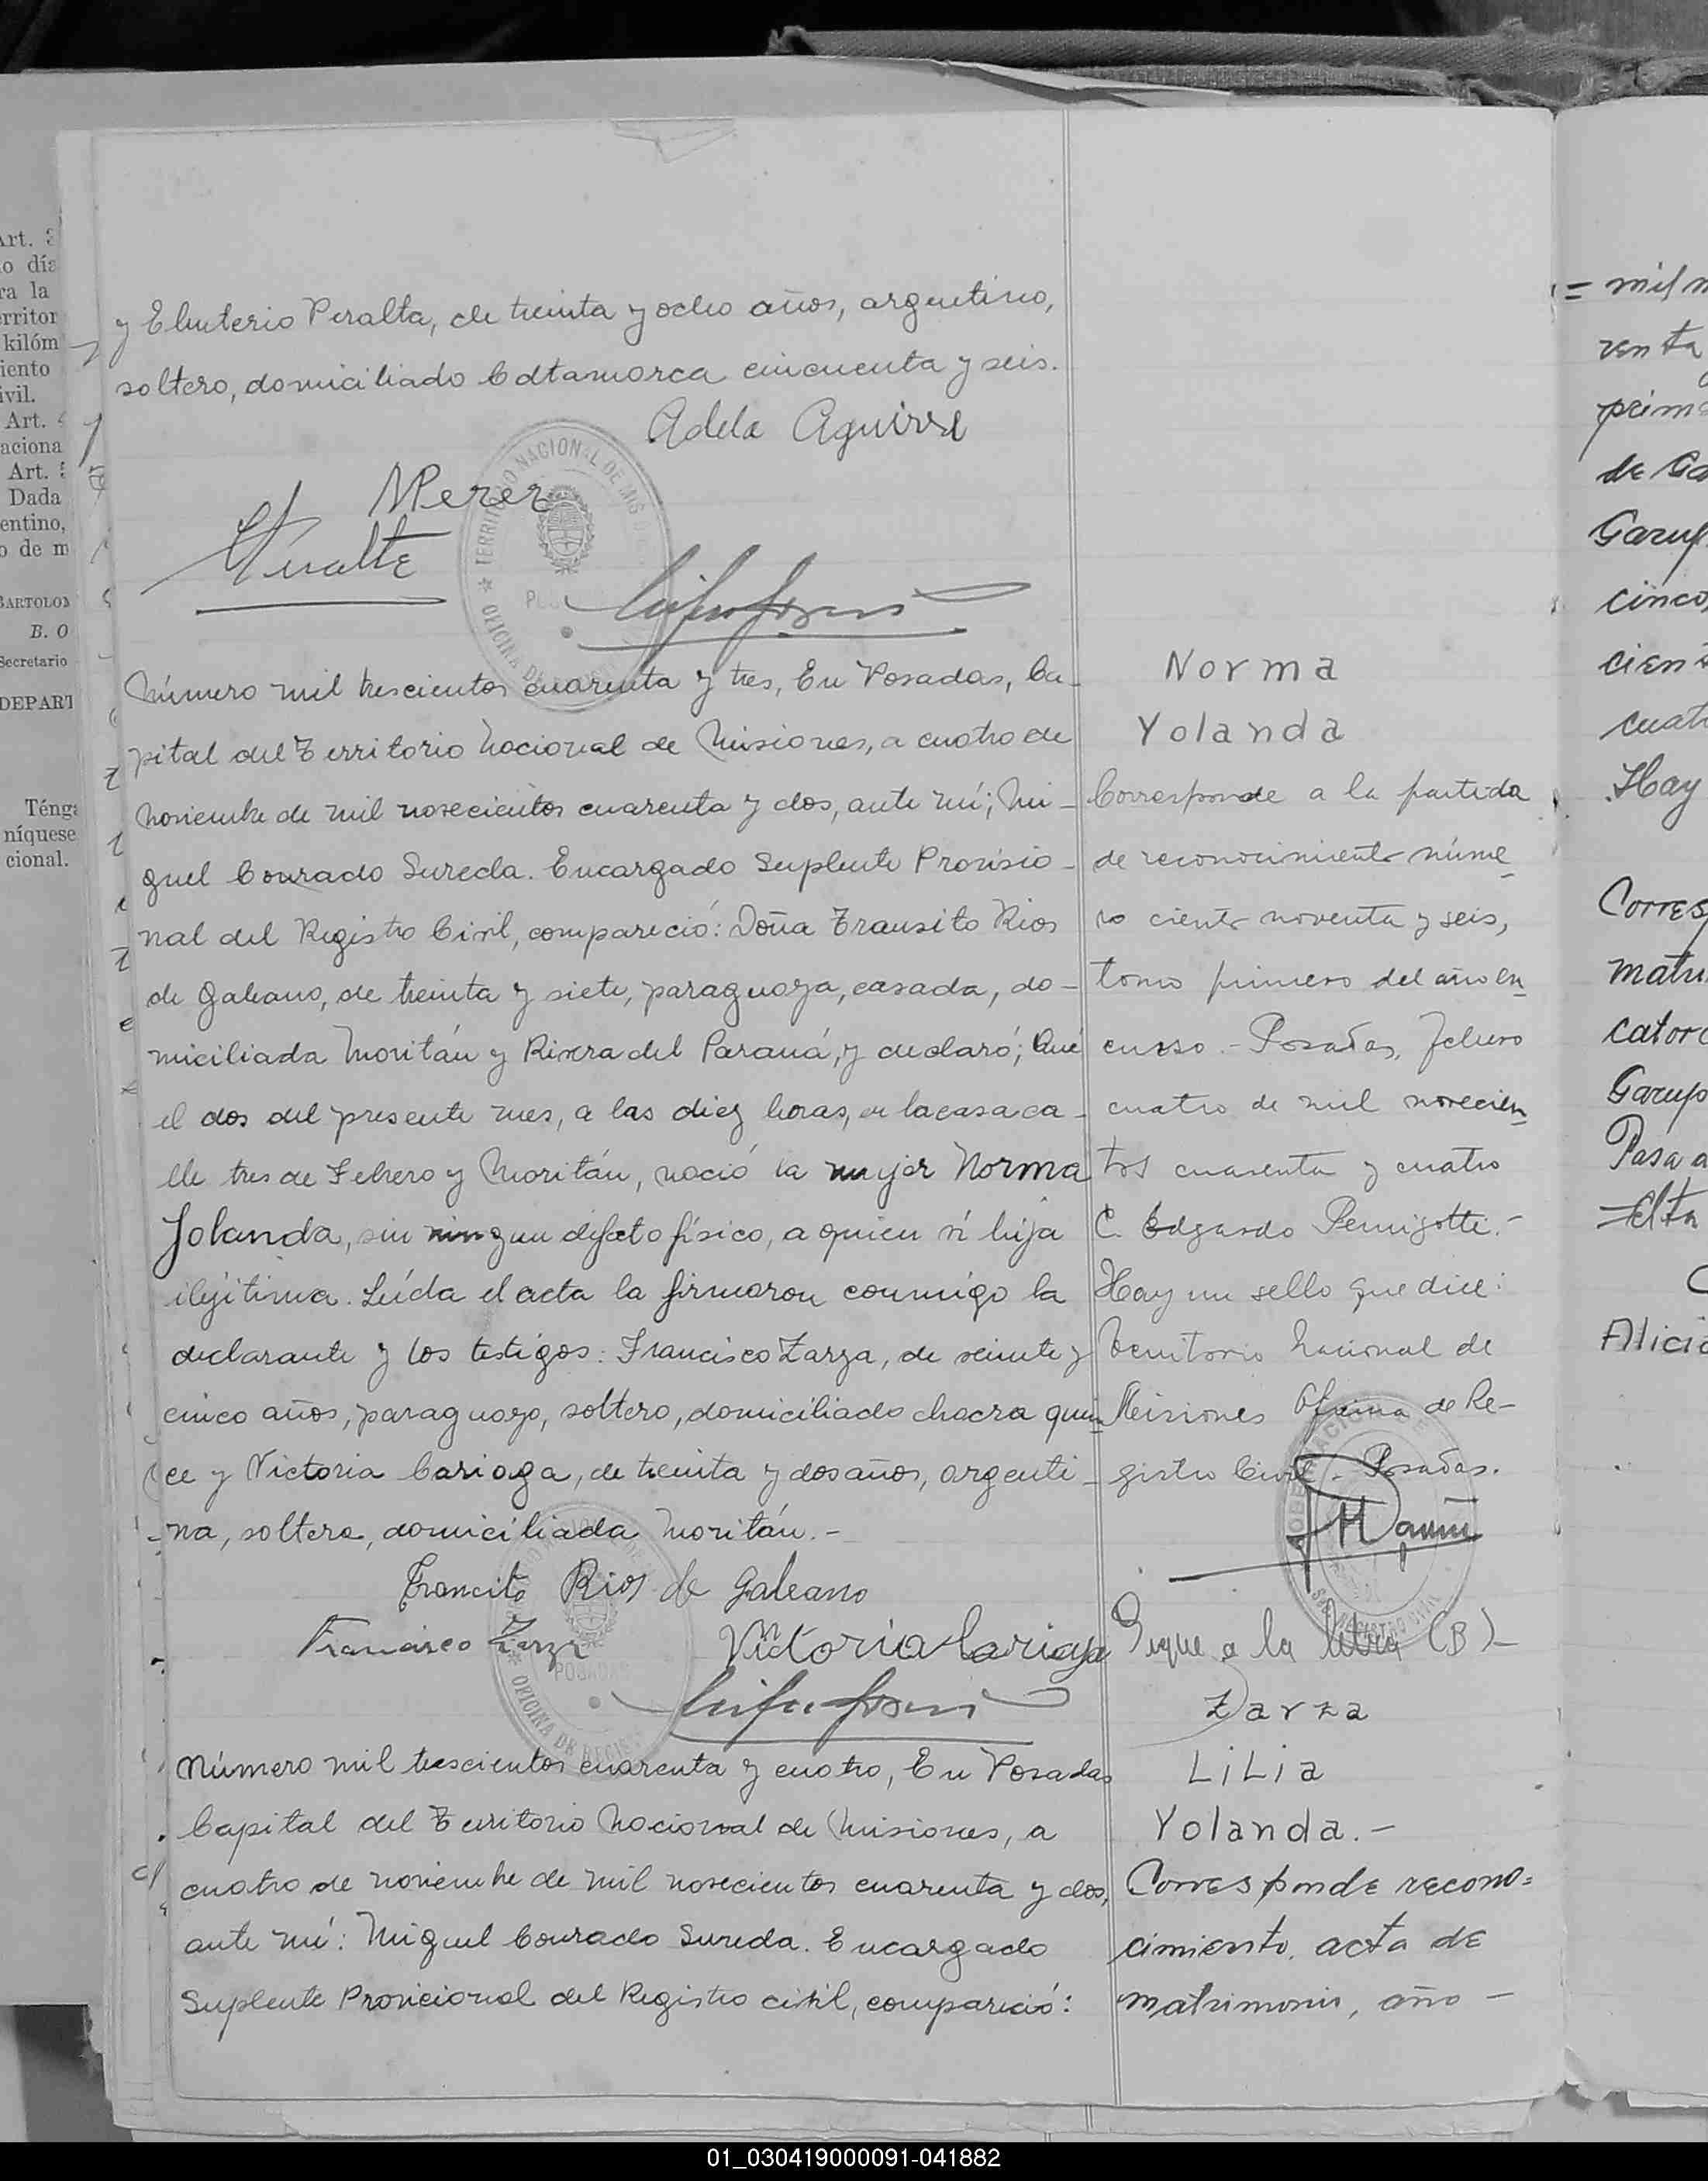 y Eluterio Peralta, de treinta y ocho años, argentino,
soltero, domiciliado Catamarca cincuenta y seis.
Adela Aguirre
NPerez
TERRITORIO NACIONAL DE MIS
Número mil trescientos cuarenta y tres, En Posadas, Ca-
pital del Territorio Nacional de Misiones, a cuatro de
Noviembre de mil novecientos cuarenta y dos, ante mí; Mi-
guel Conrado Sureda. Encargado Suplente Provisio-
nal del Registro Civil, compareció: Doña Transito Rios
de Galeano, de treinta y siete, paraguaya, casada, do-
miciliada Moritán y Rivera del Paraná, y declaró; Qué
el dos del presente mes, a las diez horas, en la casa ca-
lle tres de Febrero y Moritán, nació la mujer Norma
Jolanda, sin ningun defecto físico, a quien ví hija
ilejitima. Leída el acta la firmaron conmigo la
declarante y los testigos: Francisco Zarza, de veinte y
cinco años, paraguayo, soltero, domiciliado chacra quin
ce y Victoria Carioga, de treinta y dos años, argenti-
na, soltera, domiciliada Moritán.-
Trancito Rios de Galeano
Francisco Zarza
Victoria Cariaga
POSADAS
OFICINA DE REGIS
Número mil trescientos cuarenta y cuatro, En Posadas
Capital del Territorio Nacional de Misiones, a
cuatro de noviembre de mil novecientos cuarenta y dos,
ante mí: Miguel Conrado Sureda. Encargado
Suplente Provicional del Registro civil, compareció:
Norma
Yolanda
Corresponde a la partida
de reconocimiento núme
ro ciento noventa y seis,
tomo primero del año en
curso.- Posadas, Febrero
cuatro de mil novecien
tos cuarenta y cuatro
C. Edgardo Pernigotti.-
Hay un sello que dice:
Territorio Nacional de
Misiones Oficina de Re-
gistro Civil - Posadas.
Sigue a la letra (B)-
Zarza
LiLia
Yolanda.-
Corresponde recono=
cimiento, acta de
matrimonio, año -
Art. 3
o día
ra la
erritor
kilóm
iento
ivil.
Art. 4
aciona
Art. 5
Dada
entino,
o de m
BARTOLOM
B. O
Secretario
DEPART
Ténga
níquese
cional.
= mil n
renta
prim
de Ga
Garup
cinco,
cient
cuat
Hay
Corres
matri
catorc
Garup
Pasa a
Alicia
01_030419000091-041882